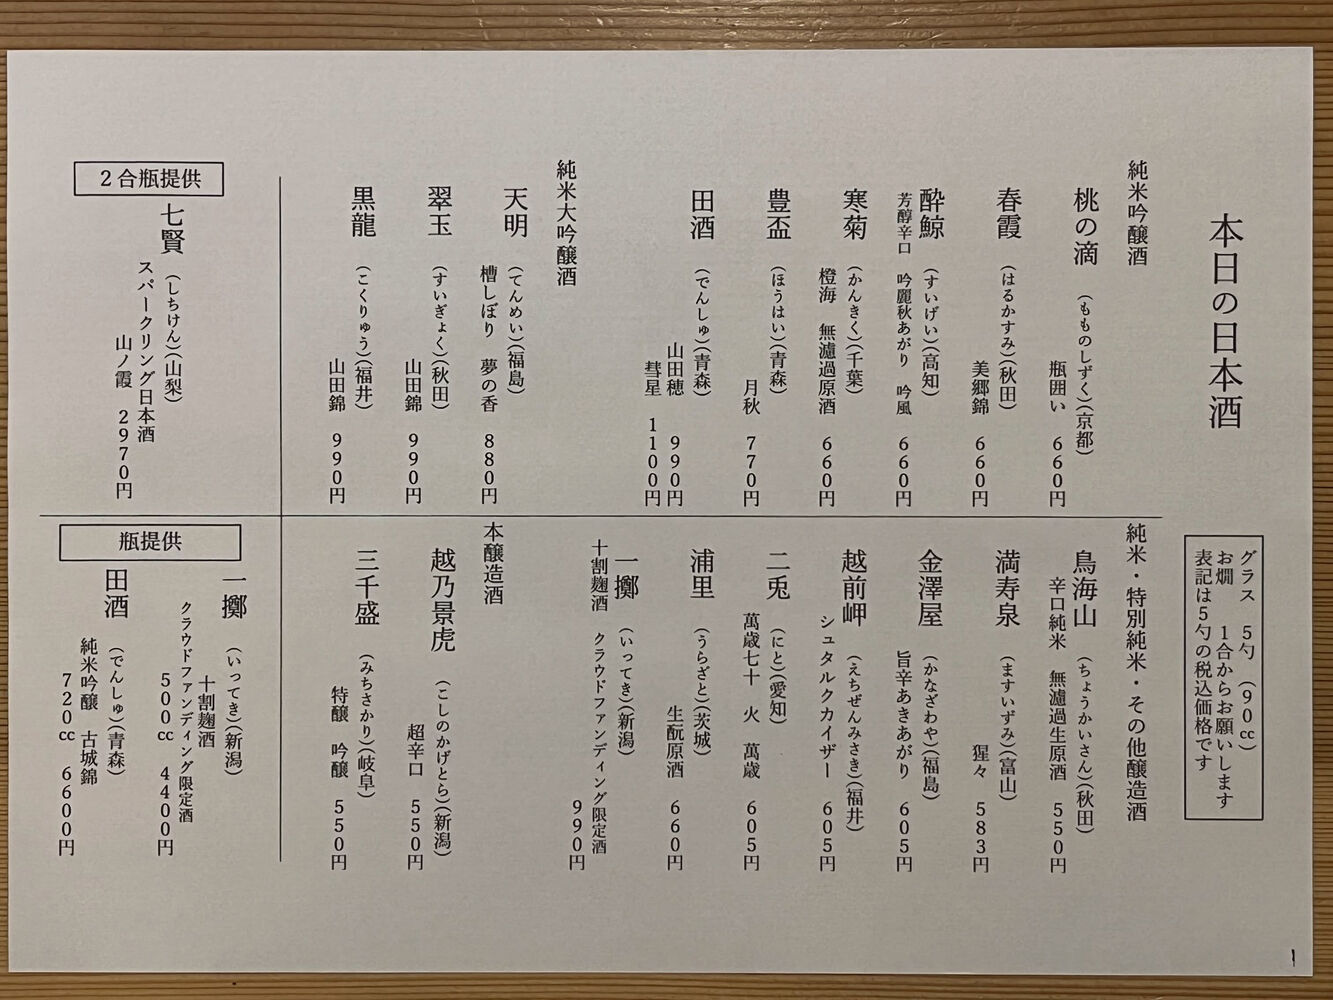 本日の日本酒
グラス 5勺 (90cc)
お燗 1合からお願いします
表記は5勺の税込価格です
純米吟醸酒
桃の滴 (もものしずく)(京都)
瓶囲い 660円
春霞 (はるかすみ)(秋田)
美郷錦 660円
酔鯨 (すいげい)(高知)
芳醇辛口 吟麗秋あがり 吟風 660円
寒菊 (かんきく)(千葉)
橙海 無濾過原酒 660円
豊盃 (ほうはい)(青森)
月秋 770円
田酒 (でんしゅ)(青森)
山田穂 990円
彗星 1100円
純米大吟醸酒
天明 (てんめい)(福島)
槽しぼり 夢の香 880円
翠玉 (すいぎょく)(秋田)
山田錦 990円
黒龍 (こくりゅう)(福井)
山田錦 990円
純米・特別純米・その他醸造酒
鳥海山 (ちょうかいさん)(秋田)
辛口純米 無濾過生原酒 550円
満寿泉 (ますいずみ)(富山)
猩々 583円
金澤屋 (かなざわや)(福島)
旨辛あきあがり 605円
越前岬 (えちぜんみさき)(福井)
シュタルクカイザー 605円
二兎 (にと)(愛知)
萬歳七十 火 萬歳 605円
浦里 (うらざと)(茨城)
生酛原酒 660円
一擲 (いってき)(新潟)
十割麹酒 クラウドファンディング限定酒
990円
本醸造酒
越乃景虎 (こしのかげとら)(新潟)
超辛口 550円
三千盛 (みちさかり)(岐阜)
特醸 吟醸 550円
2合瓶提供
七賢 (しちけん)(山梨)
スパークリング日本酒
山ノ霞 2970円
瓶提供
一擲 (いってき)(新潟)
十割麹酒
クラウドファンディング限定酒
500cc 4400円
田酒 (でんしゅ)(青森)
純米吟醸 古城錦
720cc 6600円
1